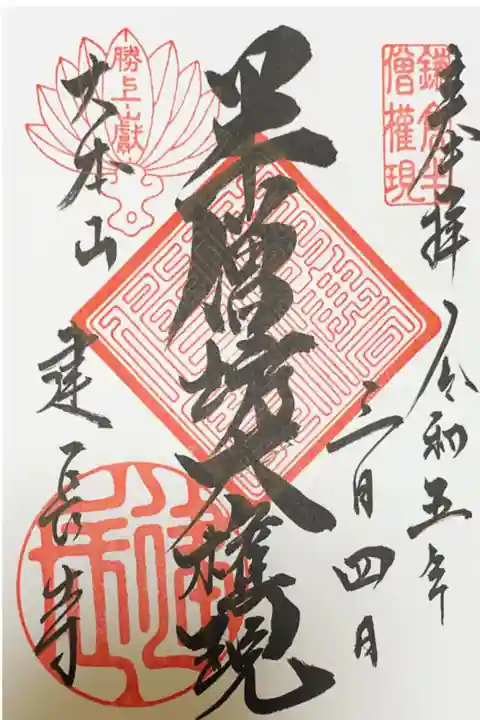 奉拝
令和五年
三月四日
鎌倉半
僧権現
半僧坊大権現
勝上山献
大本山
建長寺